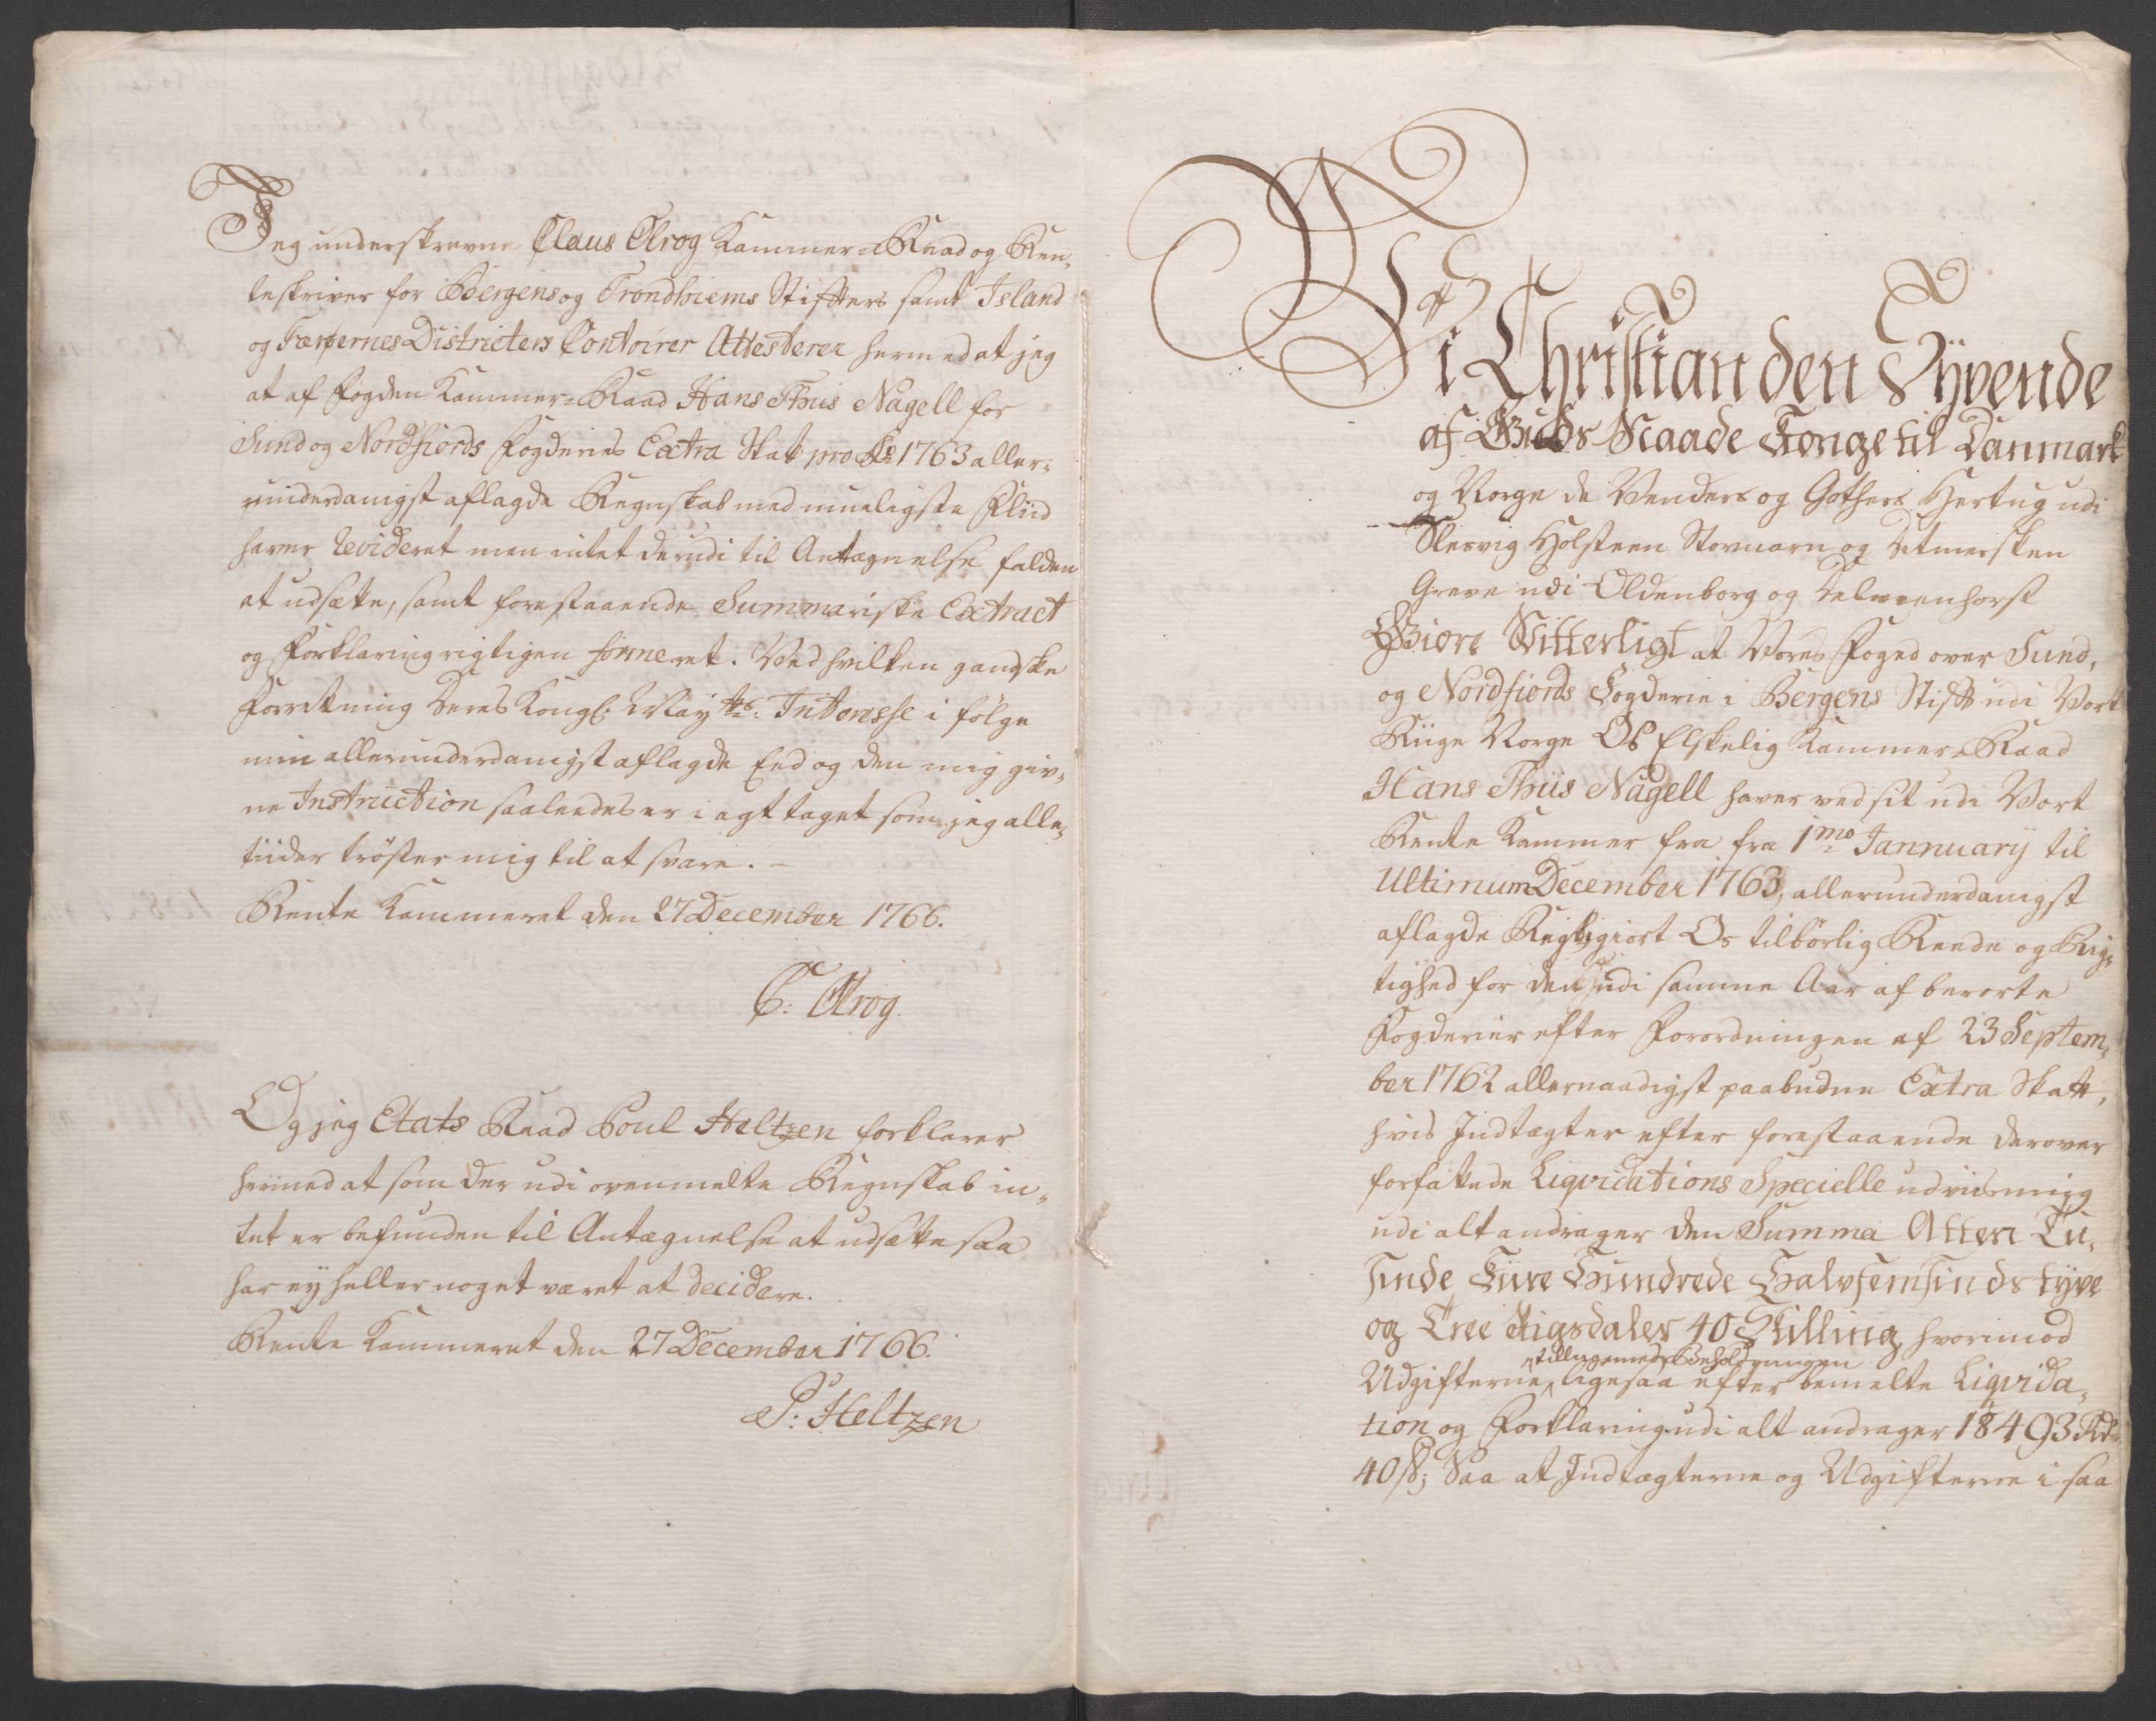 Jeg underskrevne Claus Olrog Kammer-Raad og Ren-
teskriver for Bergens og Trondhiems Stifters samt Island
og Færøernes Districters Contoirer Attesterer hermed at jeg
at af Fogden Kammer-Raad Hans Thiis Nagell for
Sund og Nordfiords Fogderies Extra Skat pro Ao 1763 aller-
underdanigst aflagde Regnskab med mueligste Fliid
haver Revideret men intet derudi til Antægnelse falden
at udsætte, samt forestaaende Summariske Extract
og Forklaring rigtigen formeret. Ved hvilken gandske
Forretning Deres Kongl: Mayts: Interesse i følge
min allerunderdanigst aflagde Eed og den mig giv-
ne Instruction saaledes er i agt taget som jeg alle-
tiider trøster mig til at svare.
Rente Kammeret den 27 December 1766.
C: Olrog
Og jeg Etats Raad Poul Heltzen forklarer
hermed at som der udi ovenmelte Regnskab in-
tet er befunden til Antægnelse at udsætte saa
har ey heller noget været at decidere.
Rente Kammeret den 27 December 1766.
P: Heltzen
Vi Christian den Syvende
af Guds Naade Konge til Danmark
og Norge de Venders og Gothers Hertug udi
Slesvig Holsteen Stormarn og Ditmersken
Greve udi Oldenborg og Delmenhorst
Giøre Vitterligt at Vores Foged over Sund,
og Nordfiords Fogderie i Bergens Stift udi Vort
Riige Norge OS Elskelig Kammer-Raad
Hans Thiis Nagell haver ved sit udi Vort
Rente Kammer fra fra 1mo Jannuary til
Ultimum December 1763, allerunderdanigst
aflagde Regsk: giort Os tilbørlig Reede og Rig-
tighed for den udi samme Aar af berørte
Fogderier efter Forordningen af 23 Septem-
ber 1762 allernaadigst paabudne Extra Skatt,
hvis Indtægter efter forestaaende derover
forfattede Liqvidations Specielle udviisning
udi alt andrager den Summa Atten Tu-
sinde Fiire Hundrede Halvfemsinds tyve
og Tree Rigsdaler 40 Skilling, hvorimod
Udgifterne, tilligemed Beholdningen ligesaa efter bemelte Liqvida-
tion og Forklaring udi alt andrager 18493 Rdr
40 s; Saa at Indtægterne og Udgifterne i saa